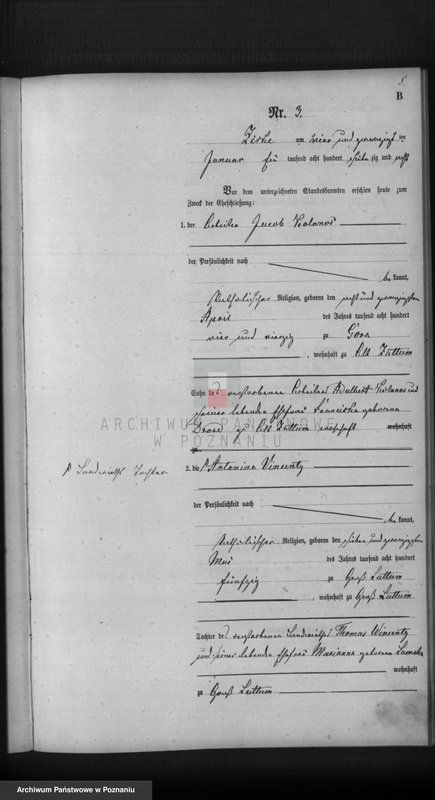 5.
B
Nr. 3.
Zirke am vier und zwanzigsten
Januar ein tausend acht hundert siebenzig und acht
Vor dem unterzeichneten Standesbeamten erschien heute zum
Zweck der Eheschließung:
1. der Arbeiter Jacob
der Persönlichkeit nach
be kannt,
katholischer Religion, geboren den acht und zwanzigsten
April des Jahres tausend acht hundert
vier und vierzig zu Góra
, wohnhaft zu Alt Zattum
Sohn des verstorbenen Arbeiters Adalbert und
seiner lebenden Ehefrau Franciska geborenen
zu Alt Zattum wohnhaft
zu
ARCHIWUM PAŃSTWOWE
W POZNANIU
Tochter
2. die Antonina Wincenty
der Persönlichkeit nach
be kannt,
katholischer Religion, geboren den sieben und zwanzigsten
Mai des Jahres tausend acht hundert
fünfzig zu Groß Luttum
, wohnhaft zu Groß Luttum
Tochter des verstorbenen Thomas Wincenty
und seiner lebenden Ehefrau Marianna geborenen
wohnhaft
zu Groß Luttum
Archiwum Państwowe w Poznaniu